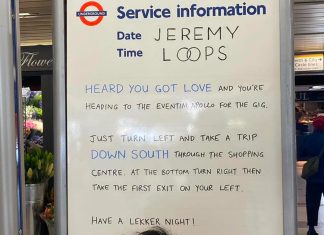 UNDERGROUND
Service information
Date JEREMY
Time LOOPS
HEARD YOU GOT LOVE AND YOU'RE
HEADING TO THE EVENTIM APOLLO FOR THE GIG.
JUST TURN LEFT AND TAKE A TRIP
DOWN SOUTH THROUGH THE SHOPPING
CENTRE. AT THE BOTTOM TURN RIGHT THEN
TAKE THE FIRST EXIT ON YOUR LEFT.
HAVE A LEKKER NIGHT!
Flowe
& City
Circle lines